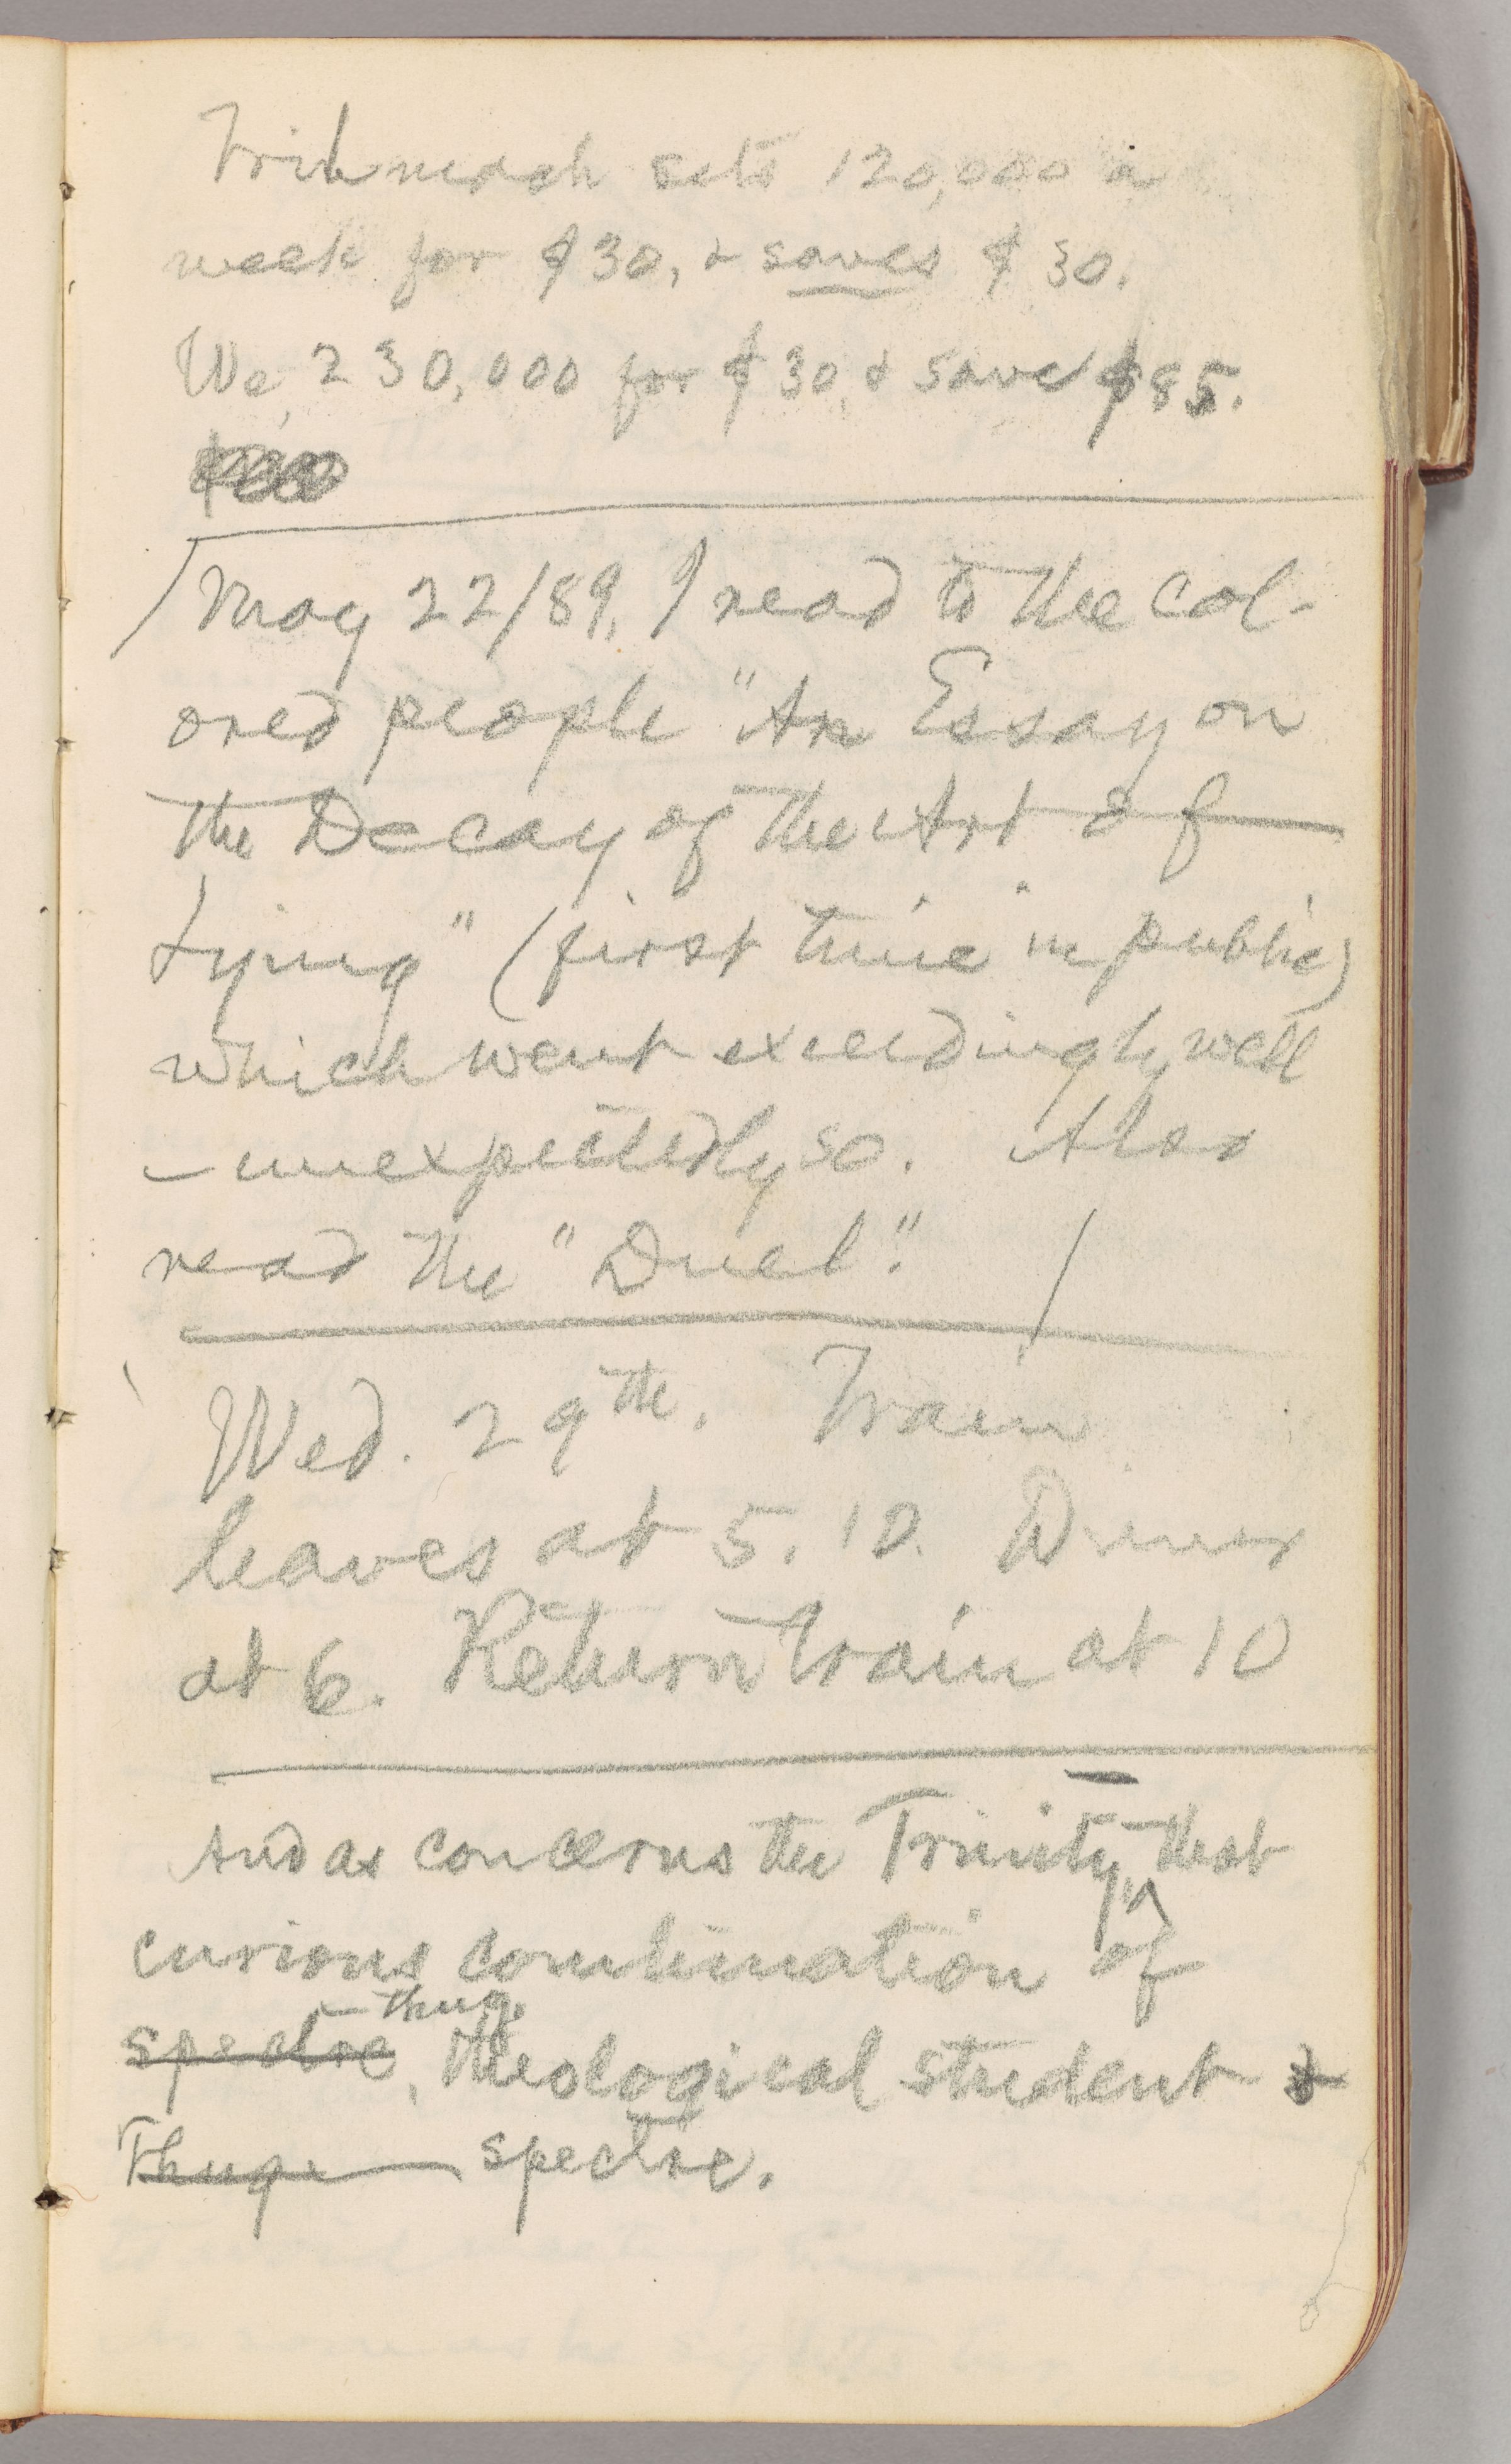 Trib mach sets 120,000 a
week for $30, & saves $30.
We, 230,000 for $30, & save $85.
May 22/89, I read to the col-
ored people "An Essay on
the Decay of the Art of
Lying" (first time in public)
which went exceedingly well
— unexpectedly so. Also
read the "Duel."
Wed. 29th. Train
leaves at 5.10. Dinner
at 6. Return train at 10
And as concerns the Trinity, that
curious combination of
thug,
spectre, theological student &
Thug spectre.